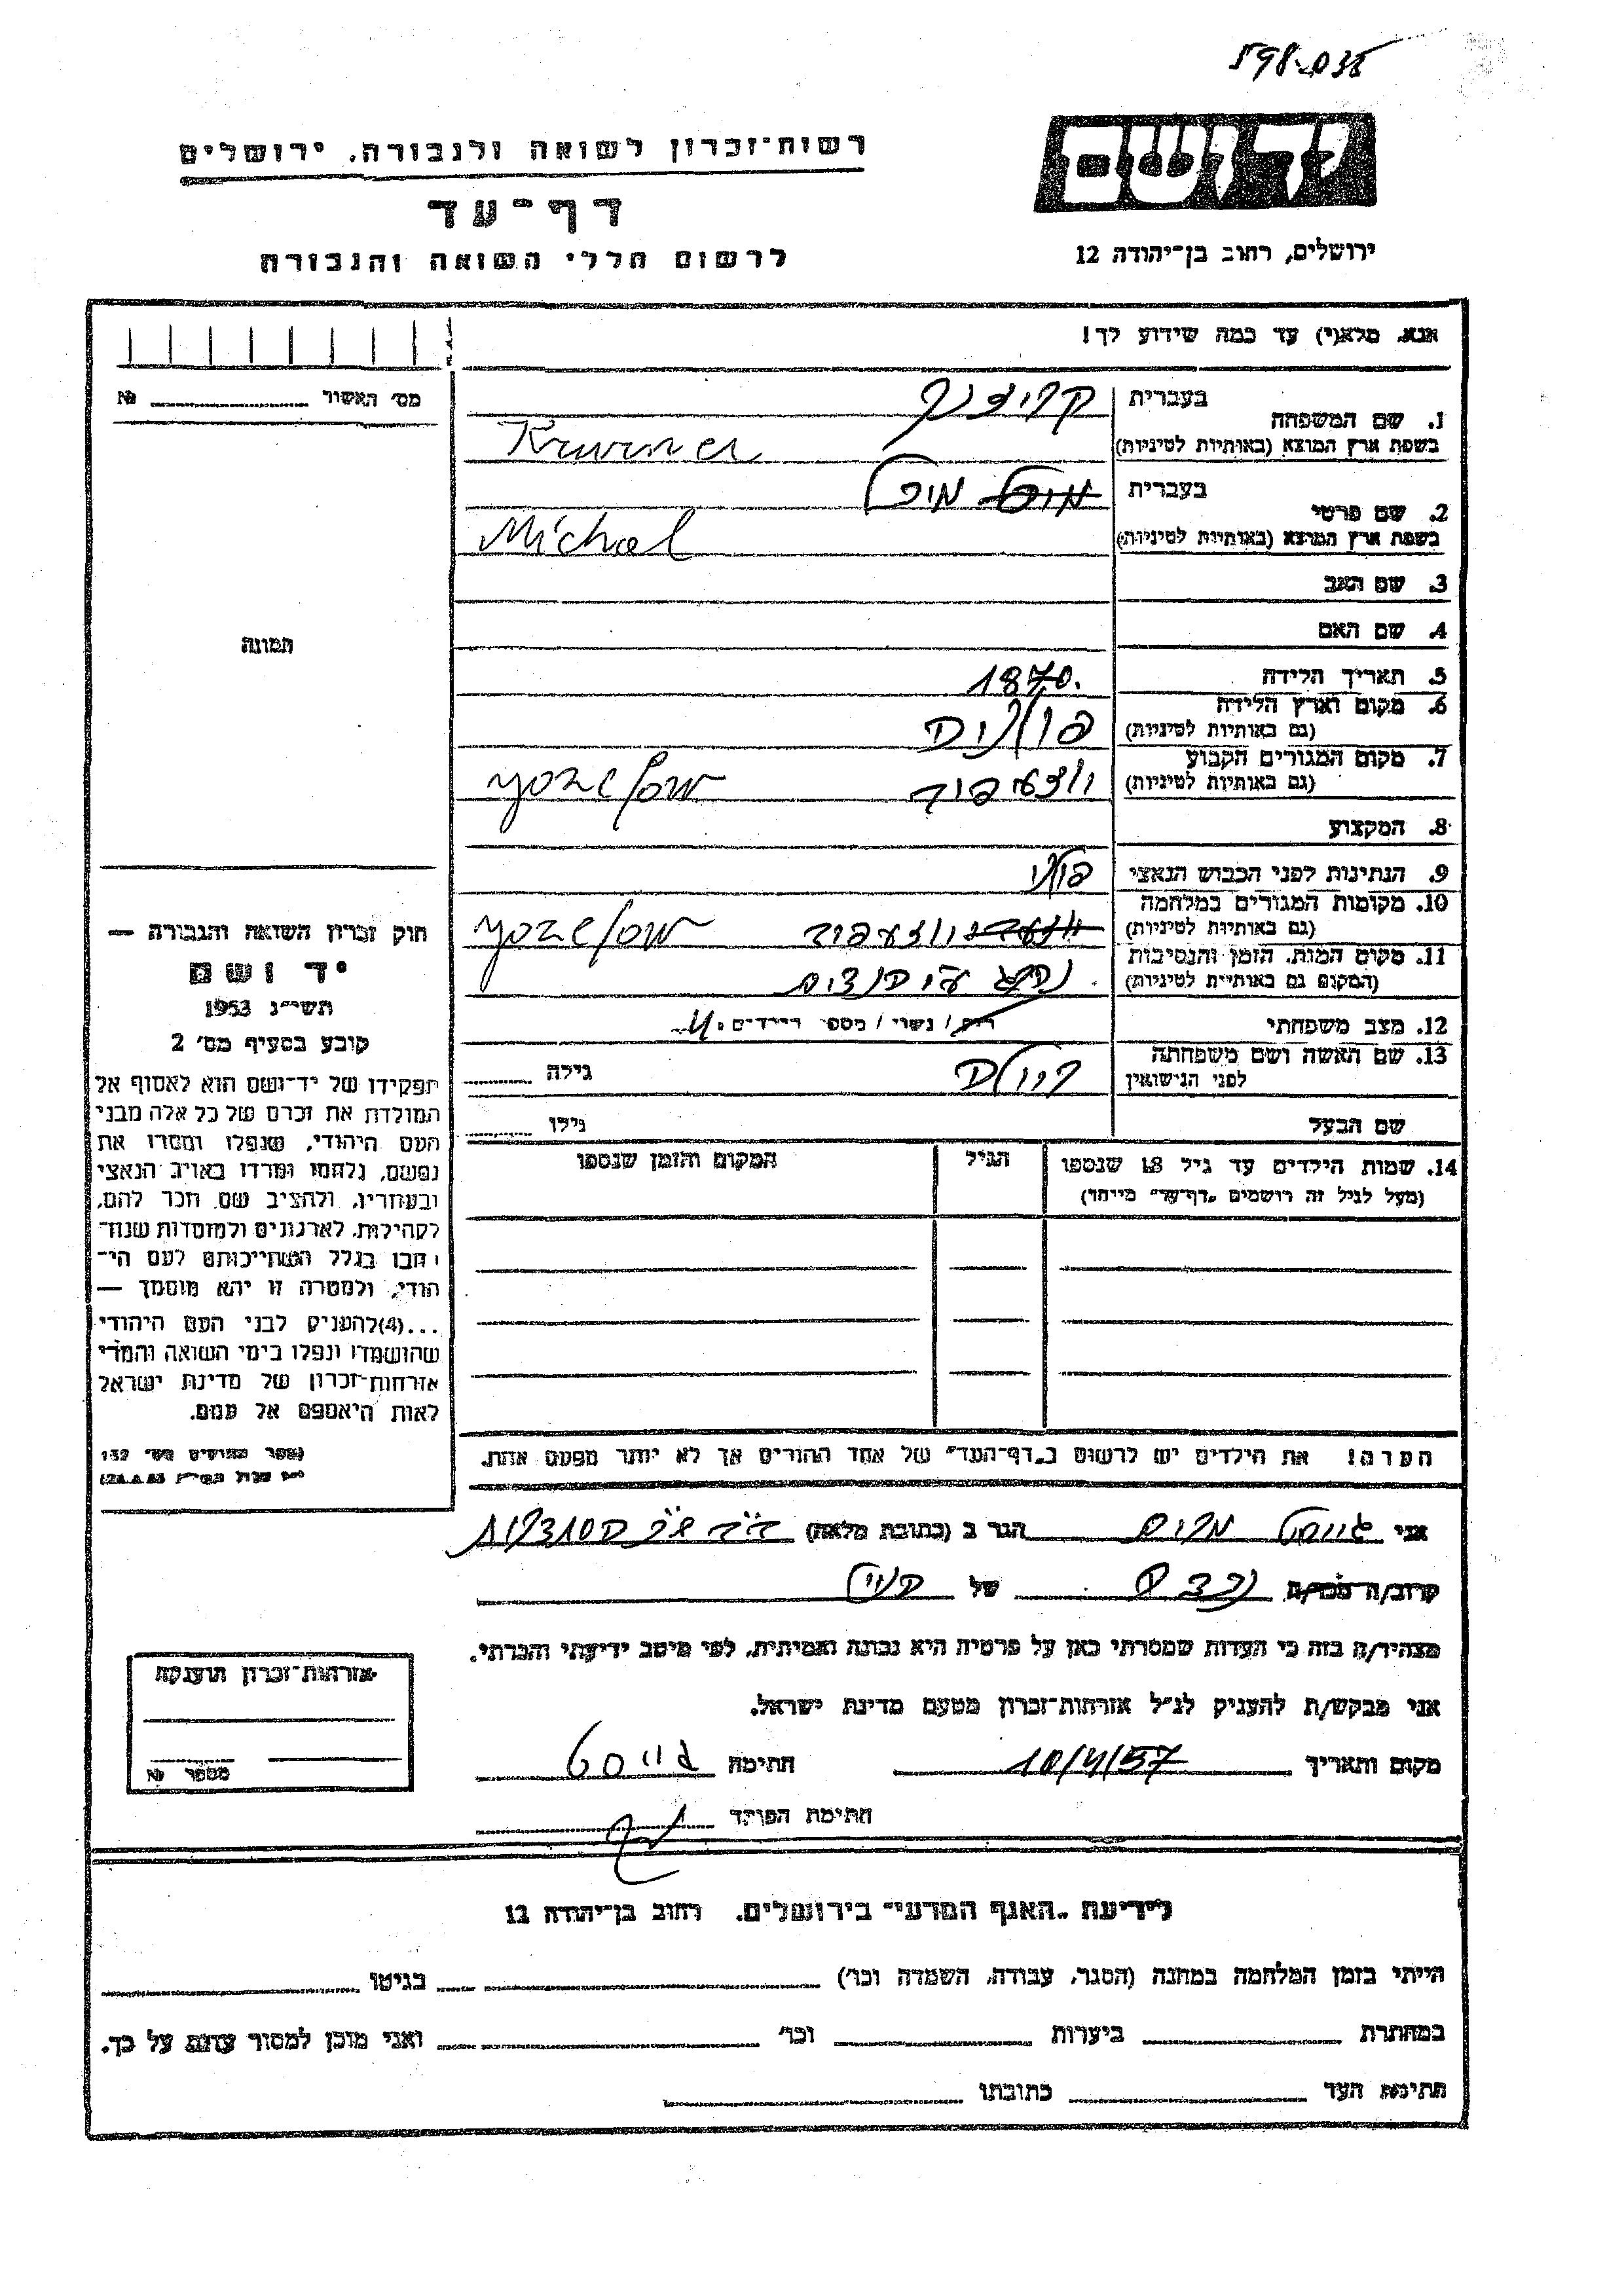 רשות־זכרון לשואה ולגבורה, ירושלים
דף־עד
לרשום חללי השואה והגבורה
יד ושם
ירושלים, רחוב בן־יהודה 12
אנא, מלא(י) עד כמה שידוע לך!
מס׳ האשור № 
1. שם המשפחה
בעברית
בשפת ארץ המוצא (באותיות לטיניות)
2. שם פרטי
בעברית
בשפת ארץ המוצא (באותיות לטיניות) Michael
3. שם האב
4. שם האם
5. תאריך הלידה 1870.
6. מקום וארץ הלידה
(גם באותיות לטיניות) פולניה
7. מקום המגורים הקבוע
(גם באותיות לטיניות) yozefow
8. המקצוע
9. הנתינות לפני הכבוש הנאצי פולני
10. מקומות המגורים במלחמה
(גם באותיות לטיניות) yozefow
11. מקום המות, הזמן והנסיבות
(המקום גם באותיות לטיניות) נהרג ע״י הנאצים
12. מצב משפחתי רווק / נשוי / מספר הילדים
13. שם האשה ושם משפחתה
לפני הנישואין גילה
שם הבעל גילו
14. שמות הילדים עד גיל 18 שנספו
(מעל לגיל זה רושמים „דף־עד״ מיוחד)
הגיל
המקום והזמן שנספו
הערה! את הילדים יש לרשום ב„דף־העד״ של אחד ההורים אך לא יותר מפעם אחת.
תמונה
חוק זכרון השואה והגבורה —
יד ושם
תשי״ג 1953
קובע בסעיף מס׳ 2
תפקידו של יד־ושם הוא לאסוף אל
המולדת את זכרם של כל אלה מבני
העם היהודי, שנפלו ומסרו את
נפשם, נלחמו ומרדו באויב הנאצי
ובעוזריו, ולהציב שם וזכר להם,
לקהילות, לארגונים ולמוסדות שנח־
רבו בגלל השתייכותם לעם הי־
הודי, ולמטרה זו יהא מוסמך —
...(4)להעניק לבני העם היהודי
שהושמדו ונפלו בימי השואה והמרי
אזרחות־זכרון של מדינת ישראל
לאות היאספם אל עמם.
אני הגר ב (כתובת מלאה)
קרוב/ה מכר/ה של
מצהיר/ה בזה כי העדות שמסרתי כאן על פרטיה היא נכונה ואמיתית, לפי מיטב ידיעתי והכרתי.
אני מבקש/ת להעניק לנ״ל אזרחות־זכרון מטעם מדינת ישראל.
מקום ותאריך 10/4/57 חתימה
חתימת הפוקד
אזרחות־זכרון הוענקה
מספר №
לידיעת „האגף המדעי״ בירושלים, רחוב בן־יהודה 12
הייתי בזמן המלחמה במחנה (הסגר, עבודה, השמדה וכו׳) בגיטו
במחתרת ביערות וכו׳ ואני מוכן למסור עדות על כך.
חתימת העד כתובתו